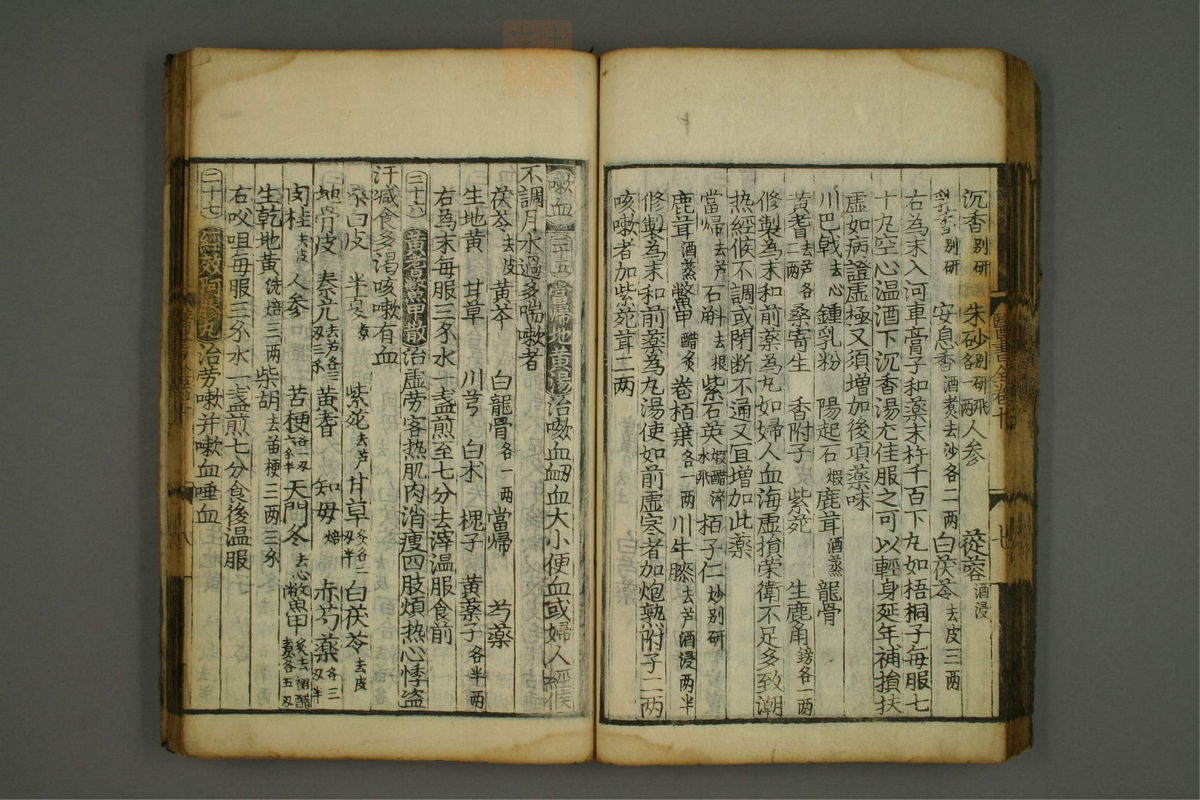 沉香別研 朱砂別研飛各一兩 人參 蓯蓉酒浸
別研 安息香酒煮去沙各二兩 白茯苓去皮三兩
右為末入河車膏子和藥末杵千百下丸如梧桐子每服七
十丸空心温酒下沉香湯尤佳服之可以輕身延年補損扶
虛如病證虛極又須增加後項藥味
川巴戟去心 鍾乳粉 陽起石煆 鹿茸酒蒸 龍骨
黃耆去芦各二兩 桑寄生 香附子 紫菀 生鹿角鎊各一兩
修製為末和前藥為丸如婦人血海虛損荣衛不足多致潮
热經候不調或閉断不通又宜增加此藥
當帰去芦 石斛去根 紫石英煆醋淬水飛 栢子仁炒別研
鹿茸酒蒸 鱉甲醋炙 卷栢葉各一兩 川牛膝去芦酒浸一兩半
修製為末和前藥為丸湯使如前虛寒者加炮熟附子二兩
咳嗽者加紫菀茸二兩
嗽血 二十五 當帰地黃湯 治嗽血衂血大小便血或婦人經候
不調月水過多喘嗽者
茯苓去皮 黃芩 白龍骨各一兩 當帰 芍藥
生地黃 甘草 川芎 白朮 槐子 黃藥子各半兩
右為末每服三錢水一盞煎至七分去滓温服食前
二十六 黃耆鱉甲散 治虛劳客热肌肉消瘦四肢煩热心悸盗
汗減食多渴咳嗽有血
桑白皮 半夏 紫菀去芦 甘草 白茯苓去皮
地骨皮 秦艽去芦各三 黃耆 知母焙 赤芍藥
肉桂去皮 人參 苦梗 天門冬去心 鱉甲
生乾地黃洗焙三兩 柴胡去苗 三兩三錢
右㕮咀每服三錢水一盞煎七分食後温服
二十七 經效阿膠丸 治劳嗽并嗽血唾血